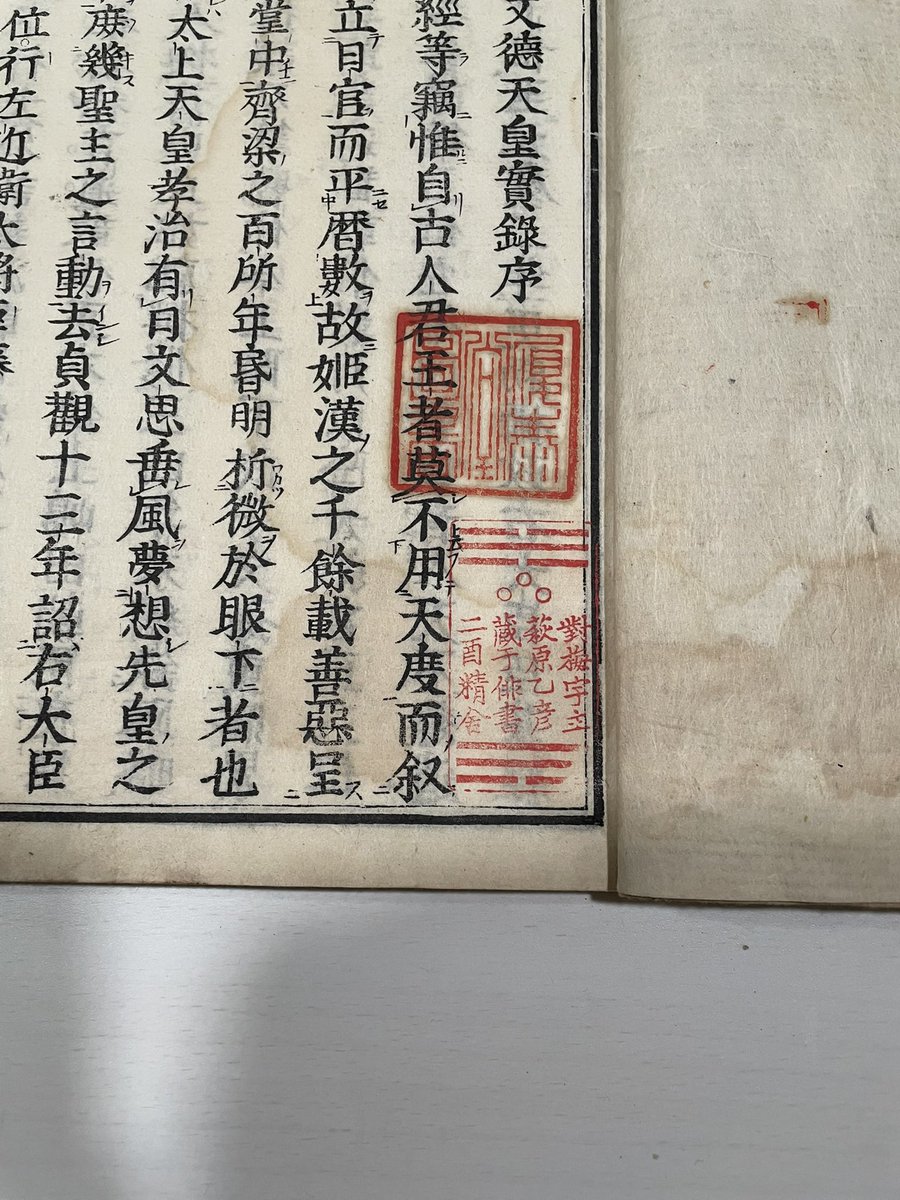 文德天皇實錄序
經等竊惟自古人君王者莫不用天度而叙
立日官而平暦數故姬漢之千餘載善惡呈
堂中齊梁之百所年昬明析微於眼下者也
太上天皇孝治有日文思垂風夢想先皇之
庻幾聖主之言動去貞觀十三年詔右大臣
位行左近衛大將臣藤
對梅宇主
萩原乙彦
藏于俳書
二酉精舍